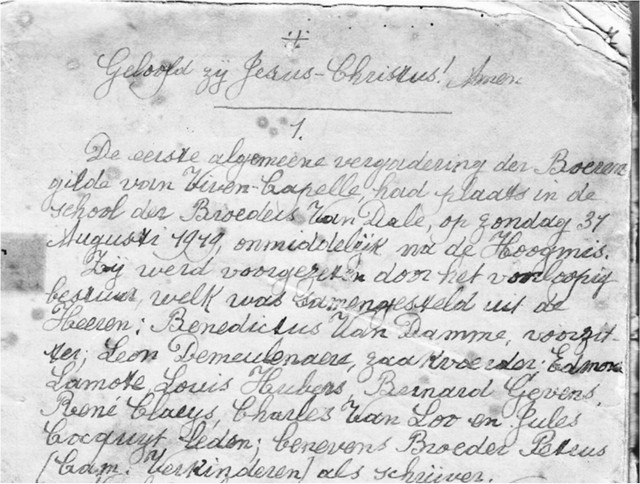 +
Geloofd zij Jesus-Christus! Amen
1.
De eerste algemeene vergadering der Boeren
gilde van Viven-Capelle, had plaats in de
school der Broeders Van Dale, op zondag 31
Augusti 1919, onmiddelijk na de Hoogmis.
Zij werd voorgezeten door het voorloopig
bestuur, welk was samengesteld uit de
Heeren: Benedictus Van Damme, voorzit-
ter; Leon Demeulenaere, zaakvoerder; Edmond
Lamote, Louis Hubers, Bernard Gevens,
René Claeys, Charles Van Loo en Jules
Cocquyt leden; benevens Broeder Petrus
(Cam. Verkinderen) als schrijver.